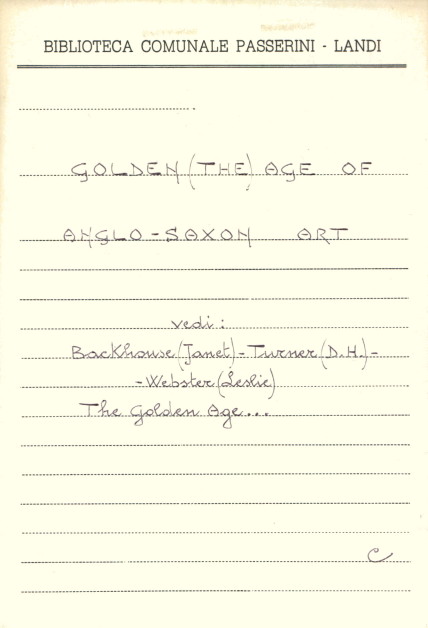 BIBLIOTECA COMUNALE PASSERINI - LANDI
GOLDEN (THE) AGE OF
ANGLO-SAXON ART
vedi:
Backhouse (Janet) - Turner (D.H.) -
- Webster (Leslie)
The Golden Age...
C